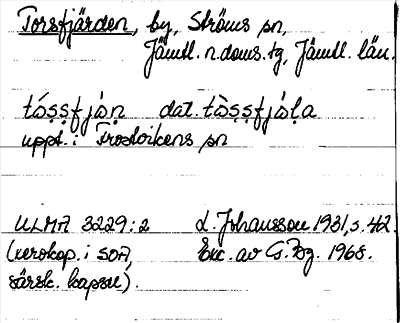 Torsfjärden, by, Ströms sn,
Jämtl. n. doms. tg, Jämtl. län.
tó̀ṣṣfjòṇ dat. tò̀ṣṣfjòḷa
uppt. i Frostvikens sn
ULMA 3229:2 L. Johansson 1931, s. 42.
(xerokop. i SOA, Exc. av G. Bg. 1968.
särsk. kapsel).